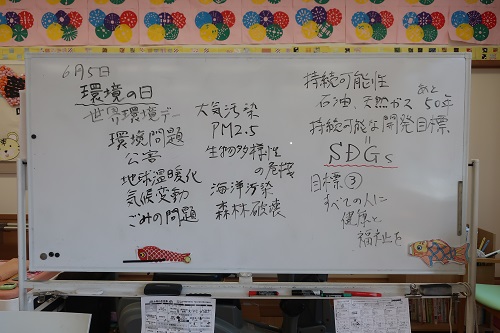 6月5日
環境の日
世界環境デー
環境問題
公害
地球温暖化
気候変動
ごみの問題
大気汚染
PM2.5
生物多様性
の危機
海洋汚染
森林破壊
持続可能性
あと
石油、天然ガス 50年
持続可能な開発目標
=
SDGs
目標③
すべての人に
健康と
福祉を